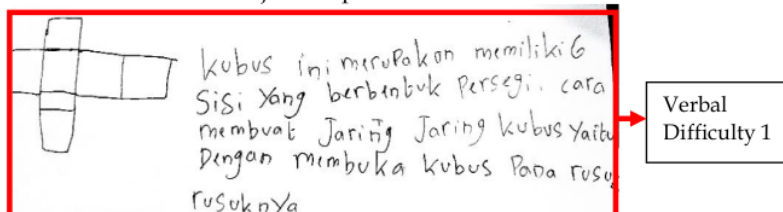 kubus ini merupakan memiliki 6
Sisi Yang berbentuk Persegi. cara
membuat Jaring Jaring kubus Yaitu
Dengan membuka kubus Pada rusu
rusuknya
Verbal
Difficulty 1